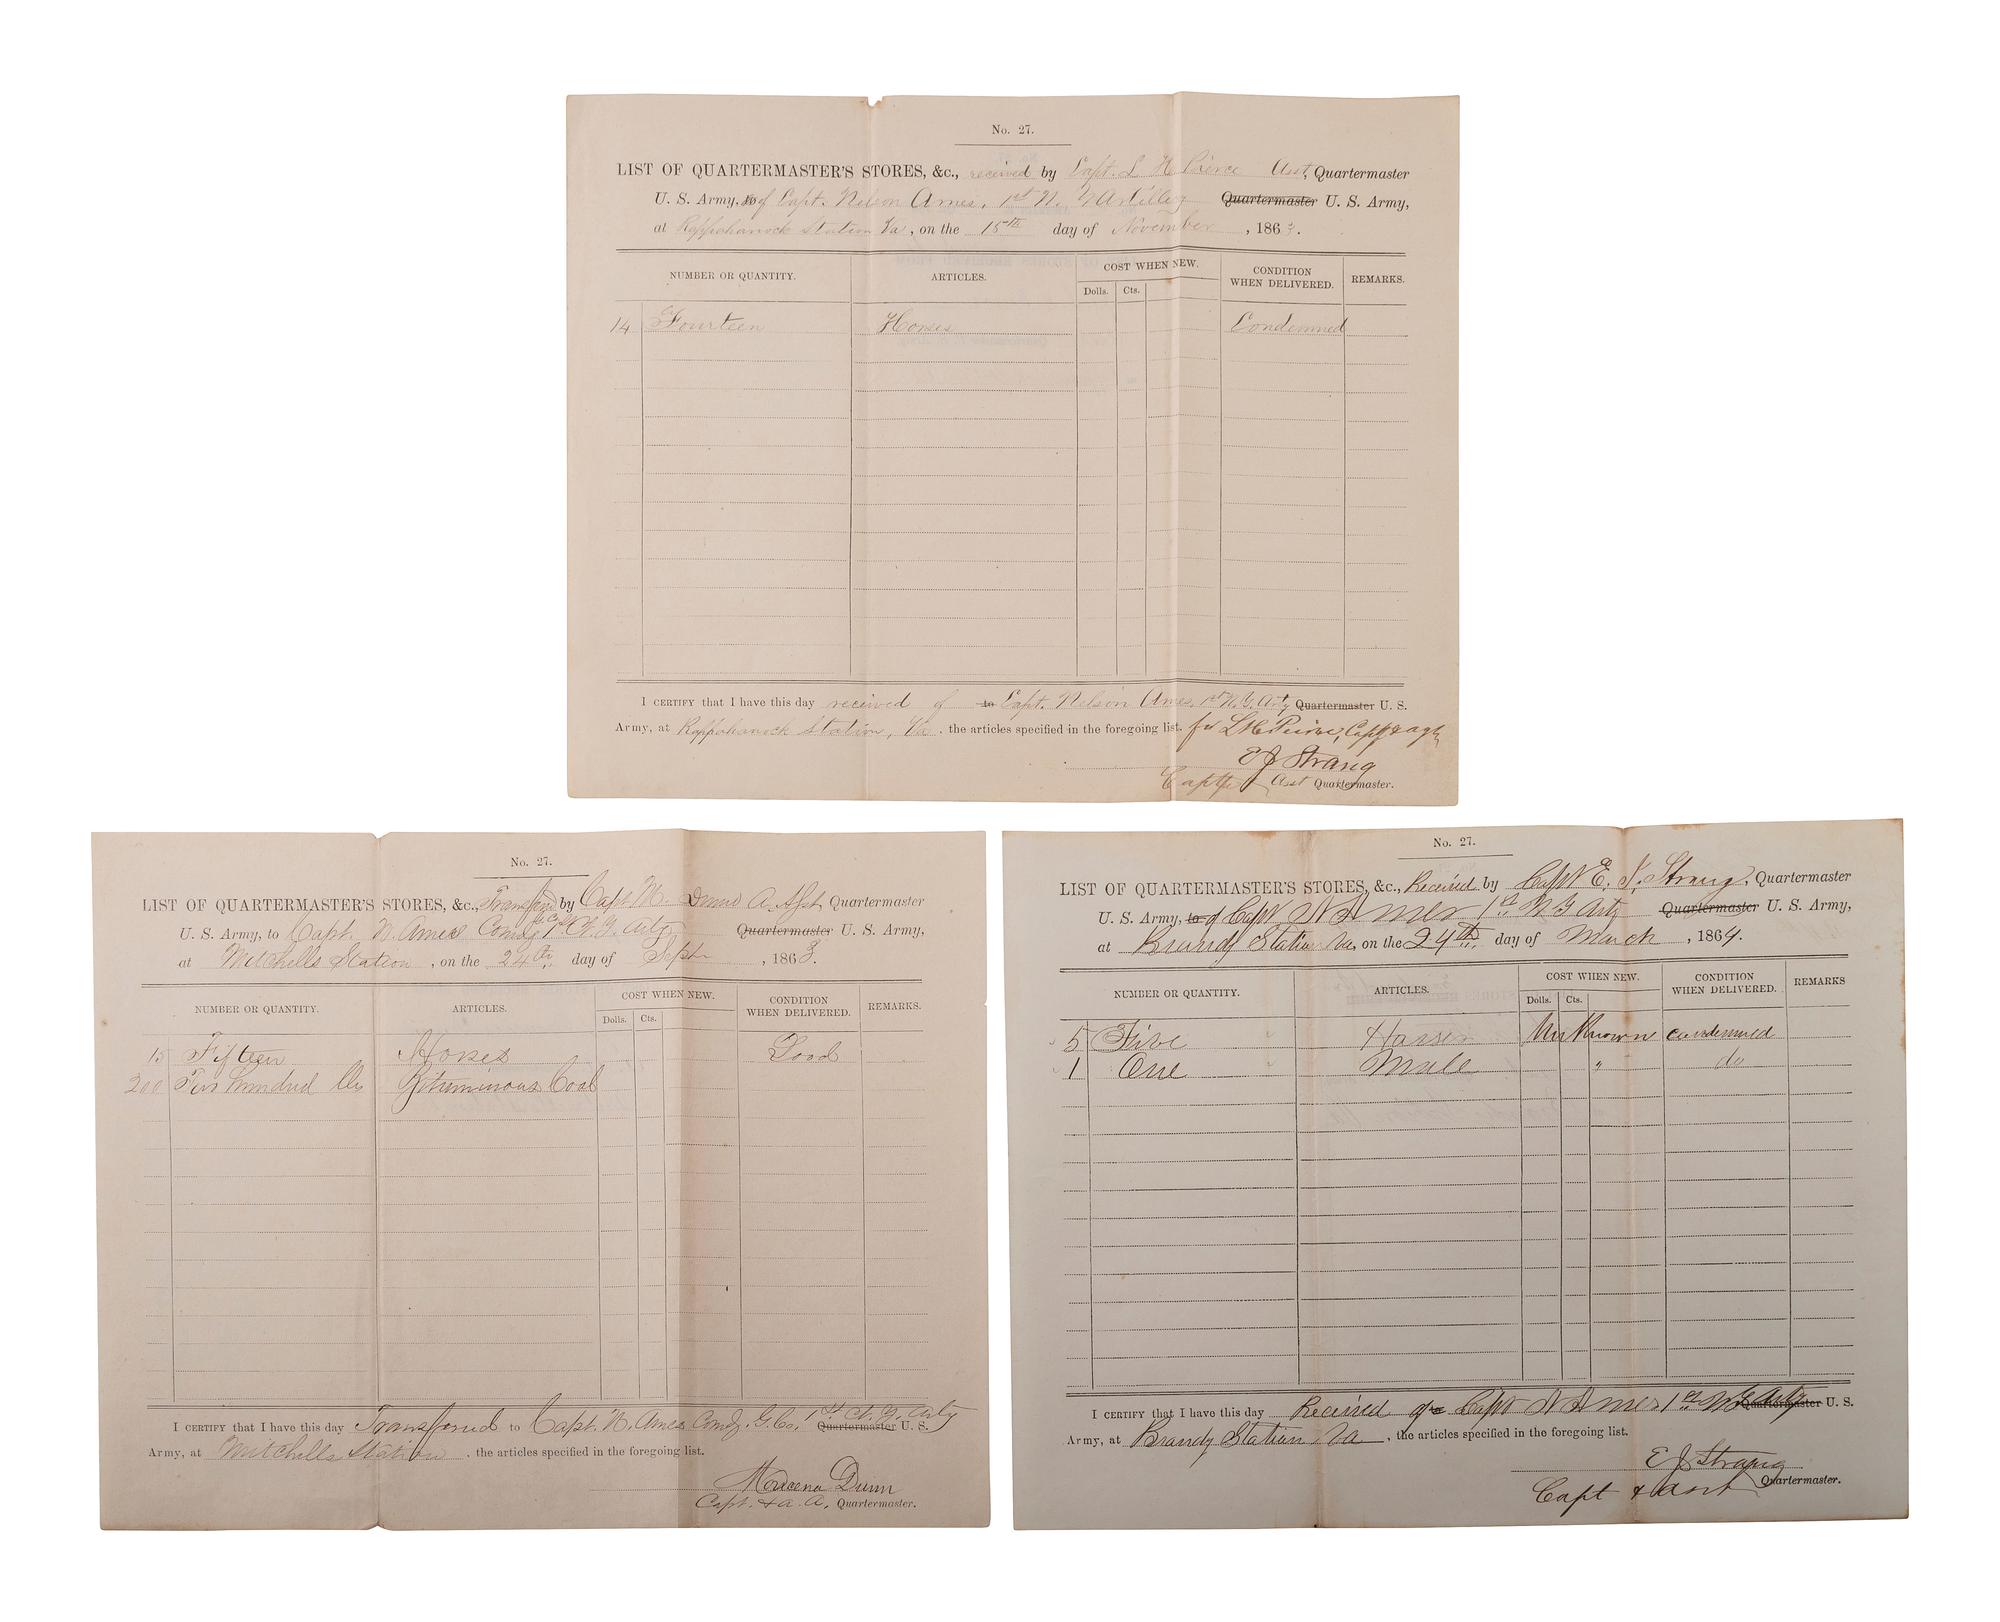 No. 27.
LIST OF QUARTERMASTER'S STORES, &c., received by Capt. L H Pierce Asst, Quartermaster
U. S. Army, of Capt. Nelson Ames, 1st N. Y Artillery Quartermaster U. S. Army,
at Rappohanock Station Va, on the 15th day of November, 1863.
NUMBER OR QUANTITY. ARTICLES. COST WHEN NEW. CONDITION WHEN DELIVERED. REMARKS.
Dolls. Cts.
14 Fourteen Horses Condemned
I CERTIFY that I have this day received of to Capt. Nelson Ames, 1st N. Y. Arty Quartermaster U. S.
Army, at Rappohanock Station, Va, the articles specified in the foregoing list. for L H Peirce, Capt &
E J Strang
Capt & Asst Quartermaster.
No. 27.
LIST OF QUARTERMASTER'S STORES, &c., Transfd by Capt M. Dunn A. Quartermaster
U. S. Army, to Capt. N. Ames Comdg Arty Quartermaster U. S. Army,
at Mitchells Station, on the 24th day of Sept, 1863.
NUMBER OR QUANTITY. ARTICLES. COST WHEN NEW. CONDITION WHEN DELIVERED. REMARKS.
Dolls. Cts.
15 Fifteen Horses Good
200 Two hundred lbs Bituminous Coal
I CERTIFY that I have this day Transfered to Capt. N. Ames Comdg. G. Co. 1st N. Y. Arty Quartermaster U. S.
Army, at Mitchells Station, the articles specified in the foregoing list.
Dunn
Capt. & a. A. Quartermaster.
No. 27.
LIST OF QUARTERMASTER'S STORES, &c., Received by Capt E. J. Strang, Quartermaster
U. S. Army, to of Capt N Ames 1st N Y Arty Quartermaster U. S. Army,
at Brandy Station Va, on the 24th day of March, 1864.
NUMBER OR QUANTITY. ARTICLES. COST WHEN NEW. CONDITION WHEN DELIVERED. REMARKS
Dolls. Cts.
5 Five Horses Unknown condemned
1 One Mule " do
I CERTIFY that I have this day Received of Capt N Ames 1st N Y Arty Quartermaster U. S.
Army, at Brandy Station, Va, the articles specified in the foregoing list.
E J Strang
Capt & Asst Quartermaster.